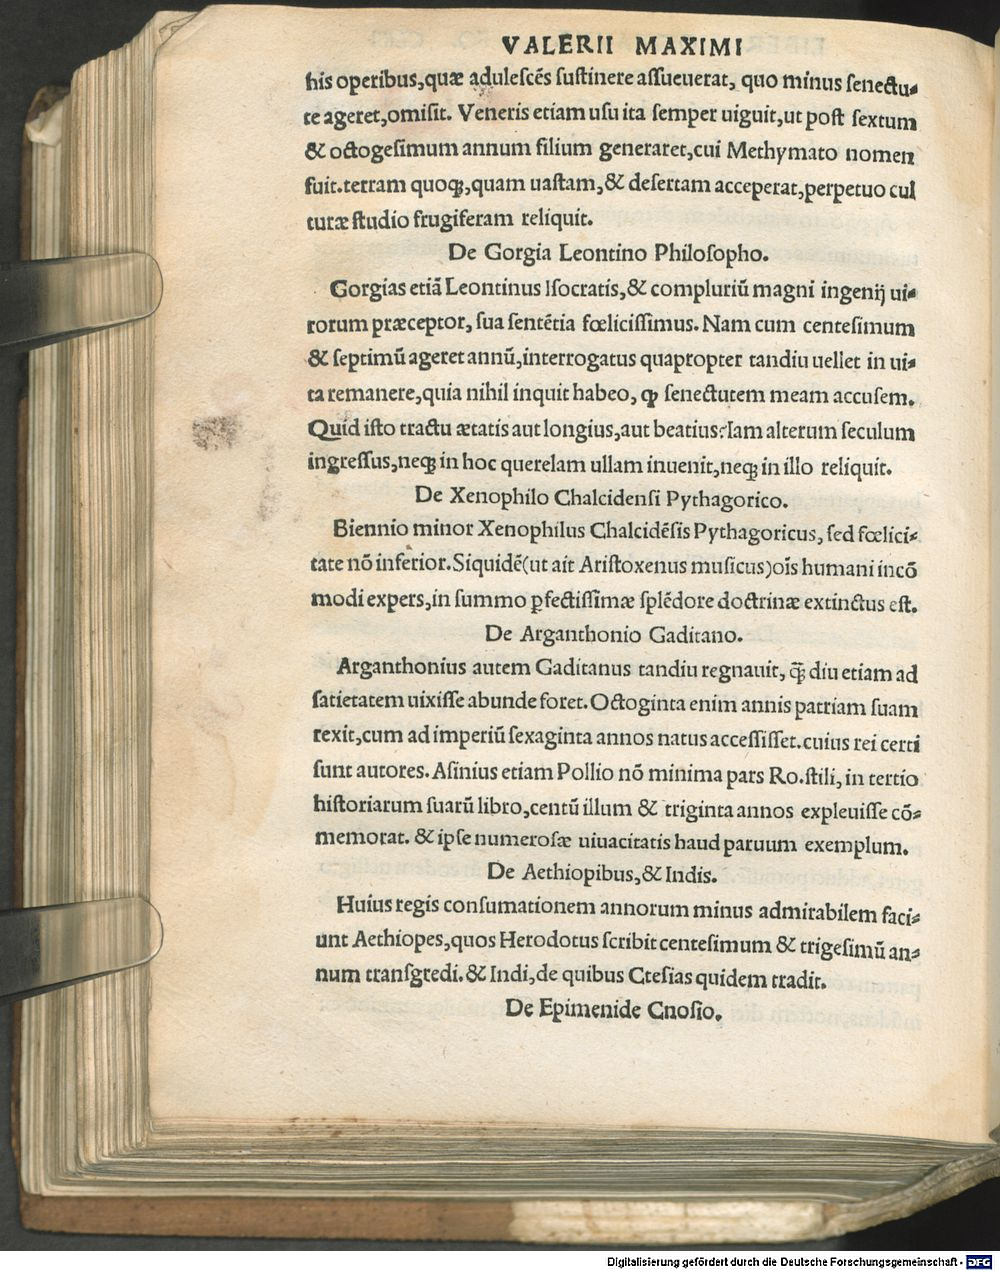 VALERII MAXIMI
his operibus,quæ adulescẽs ſuſtinere aſſueuerat, quo minus ſenectu⸗
te ageret,omiſit. Veneris etiam uſu ita ſemper uiguit,ut poſt ſextum
& octogeſimum annum filium generaret,cui Methymato nomen
fuit.terram quoqꝫ,quam uaſtam,& deſertam acceperat,perpetuo cul
turæ ſtudio frugiferam reliquit.
De Gorgia Leontino Philoſopho.
Gorgias etiã Leontinus Iſocratis,& compluriũ magni ingenij ui⸗
rorum præceptor, ſua ſentẽtia fœliciſſimus. Nam cum centeſimum
& ſeptimũ ageret annũ,interrogatus quapropter tandiu uellet in ui⸗
ta remanere,quia nihil inquit habeo, ꝙ ſenectutem meam accuſem.
Quid iſto tractu ætatis aut longius,aut beatius? Iam alterum ſeculum
ingreſſus,neqꝫ in hoc querelam ullam inuenit,neqꝫ in illo reliquit.
De Xenophilo Chalcidenſi Pythagorico.
Biennio minor Xenophilus Chalcidẽſis Pythagoricus, ſed fœlici⸗
tate nõ inferior. Siquidẽ(ut ait Ariſtoxenus muſicus)oĩs humani incõ
modi expers,in ſummo ꝑfectiſſimæ ſplẽdore doctrinæ extinctus eſt.
De Arganthonio Gaditano.
Arganthonius autem Gaditanus tandiu regnauit, q̃ diu etiam ad
ſatietatem uixiſſe abunde foret. Octoginta enim annis patriam ſuam
rexit,cum ad imperiũ ſexaginta annos natus acceſſiſſet.cuius rei certi
ſunt autores. Aſinius etiam Pollio nõ minima pars Ro.ſtili, in tertio
hiſtoriarum ſuarũ libro,centũ illum & triginta annos expleuiſſe cõ⸗
memorat. & ipſe numeroſæ uiuacitatis haud paruum exemplum.
De Aethiopibus,& Indis.
Huius regis conſumationem annorum minus admirabilem faci⸗
unt Aethiopes,quos Herodotus ſcribit centeſimum & trigeſimũ an⸗
num tranſgredi.& Indi,de quibus Cteſias quidem tradit.
De Epimenide Gnoſio.
Digitalisierung gefördert durch die Deutsche Forschungsgemeinschaft - DFG